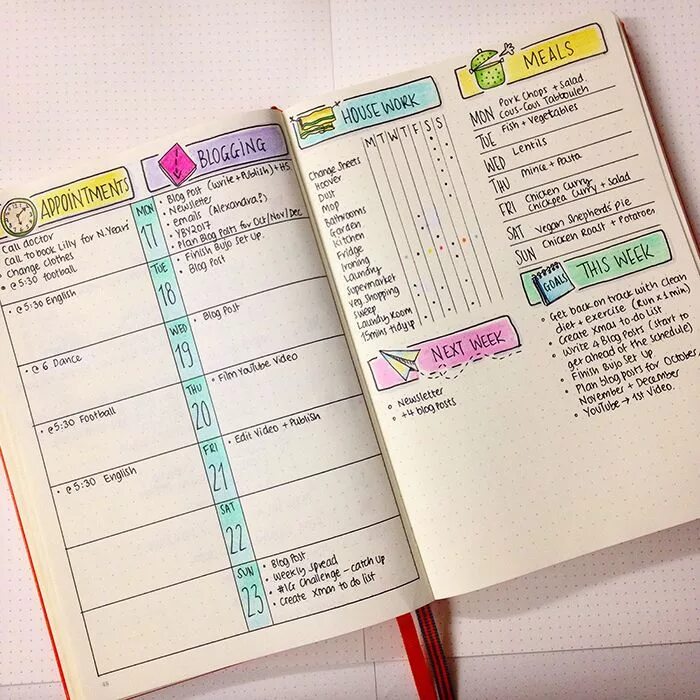 APPOINTMENTS
Call doctor
Call to book Lilly for N.Years
• Change clothes
• @ 5:30 football
• @ 5:30 English
• @ 6 Dance
• @ 5:30 Football
• @ 5:30 English
MON
17
TUE
18
WED
19
THU
20
FRI
21
SAT
22
SUN
23
BLOGGING
• Blog Post (write + Publish) + HS
• Newsletter
• emails (Alexandra?)
• YBY2017
• Plan Blog Posts for Oct/Nov/Dec
• Finish Bujo Set Up.
• Blog Post
• Blog Post
• Film YouTube Video
• Edit Video + Publish
• Blog Post
• Weekly spread
• #IG Challenge - catch up
• Create Xmas to do list
HOUSE WORK
M T W T F S S
Change Sheets
Hoover
Dust
Mop
Bathrooms
Garden
Kitchen
Fridge
Ironing
Laundry
Supermarket
Veg shopping
Sweep
Laundry Room
15mins tidy up
NEXT WEEK
• Newsletter
• +4 blog posts
MEALS
MON Pork Chops + Salad.
Cous-Cous Tabbouleh
TUE Fish + Vegetables
WED Lentils
THU Mince + Pasta
FRI Chicken Curry
Chickpea Curry + Salad
SAT Vegan Shepherds' Pie
SUN Chicken Roast + Potatoes
GOALS THIS WEEK
• Get back on track with clean
diet + exercise (Run x 1 min)
• Create Xmas to do List
• Write 4 Blog Posts (start to
get ahead of the schedule)
• Finish Bujo Set Up
• Plan blog posts for October
November + December
• YouTube → 1st Video.